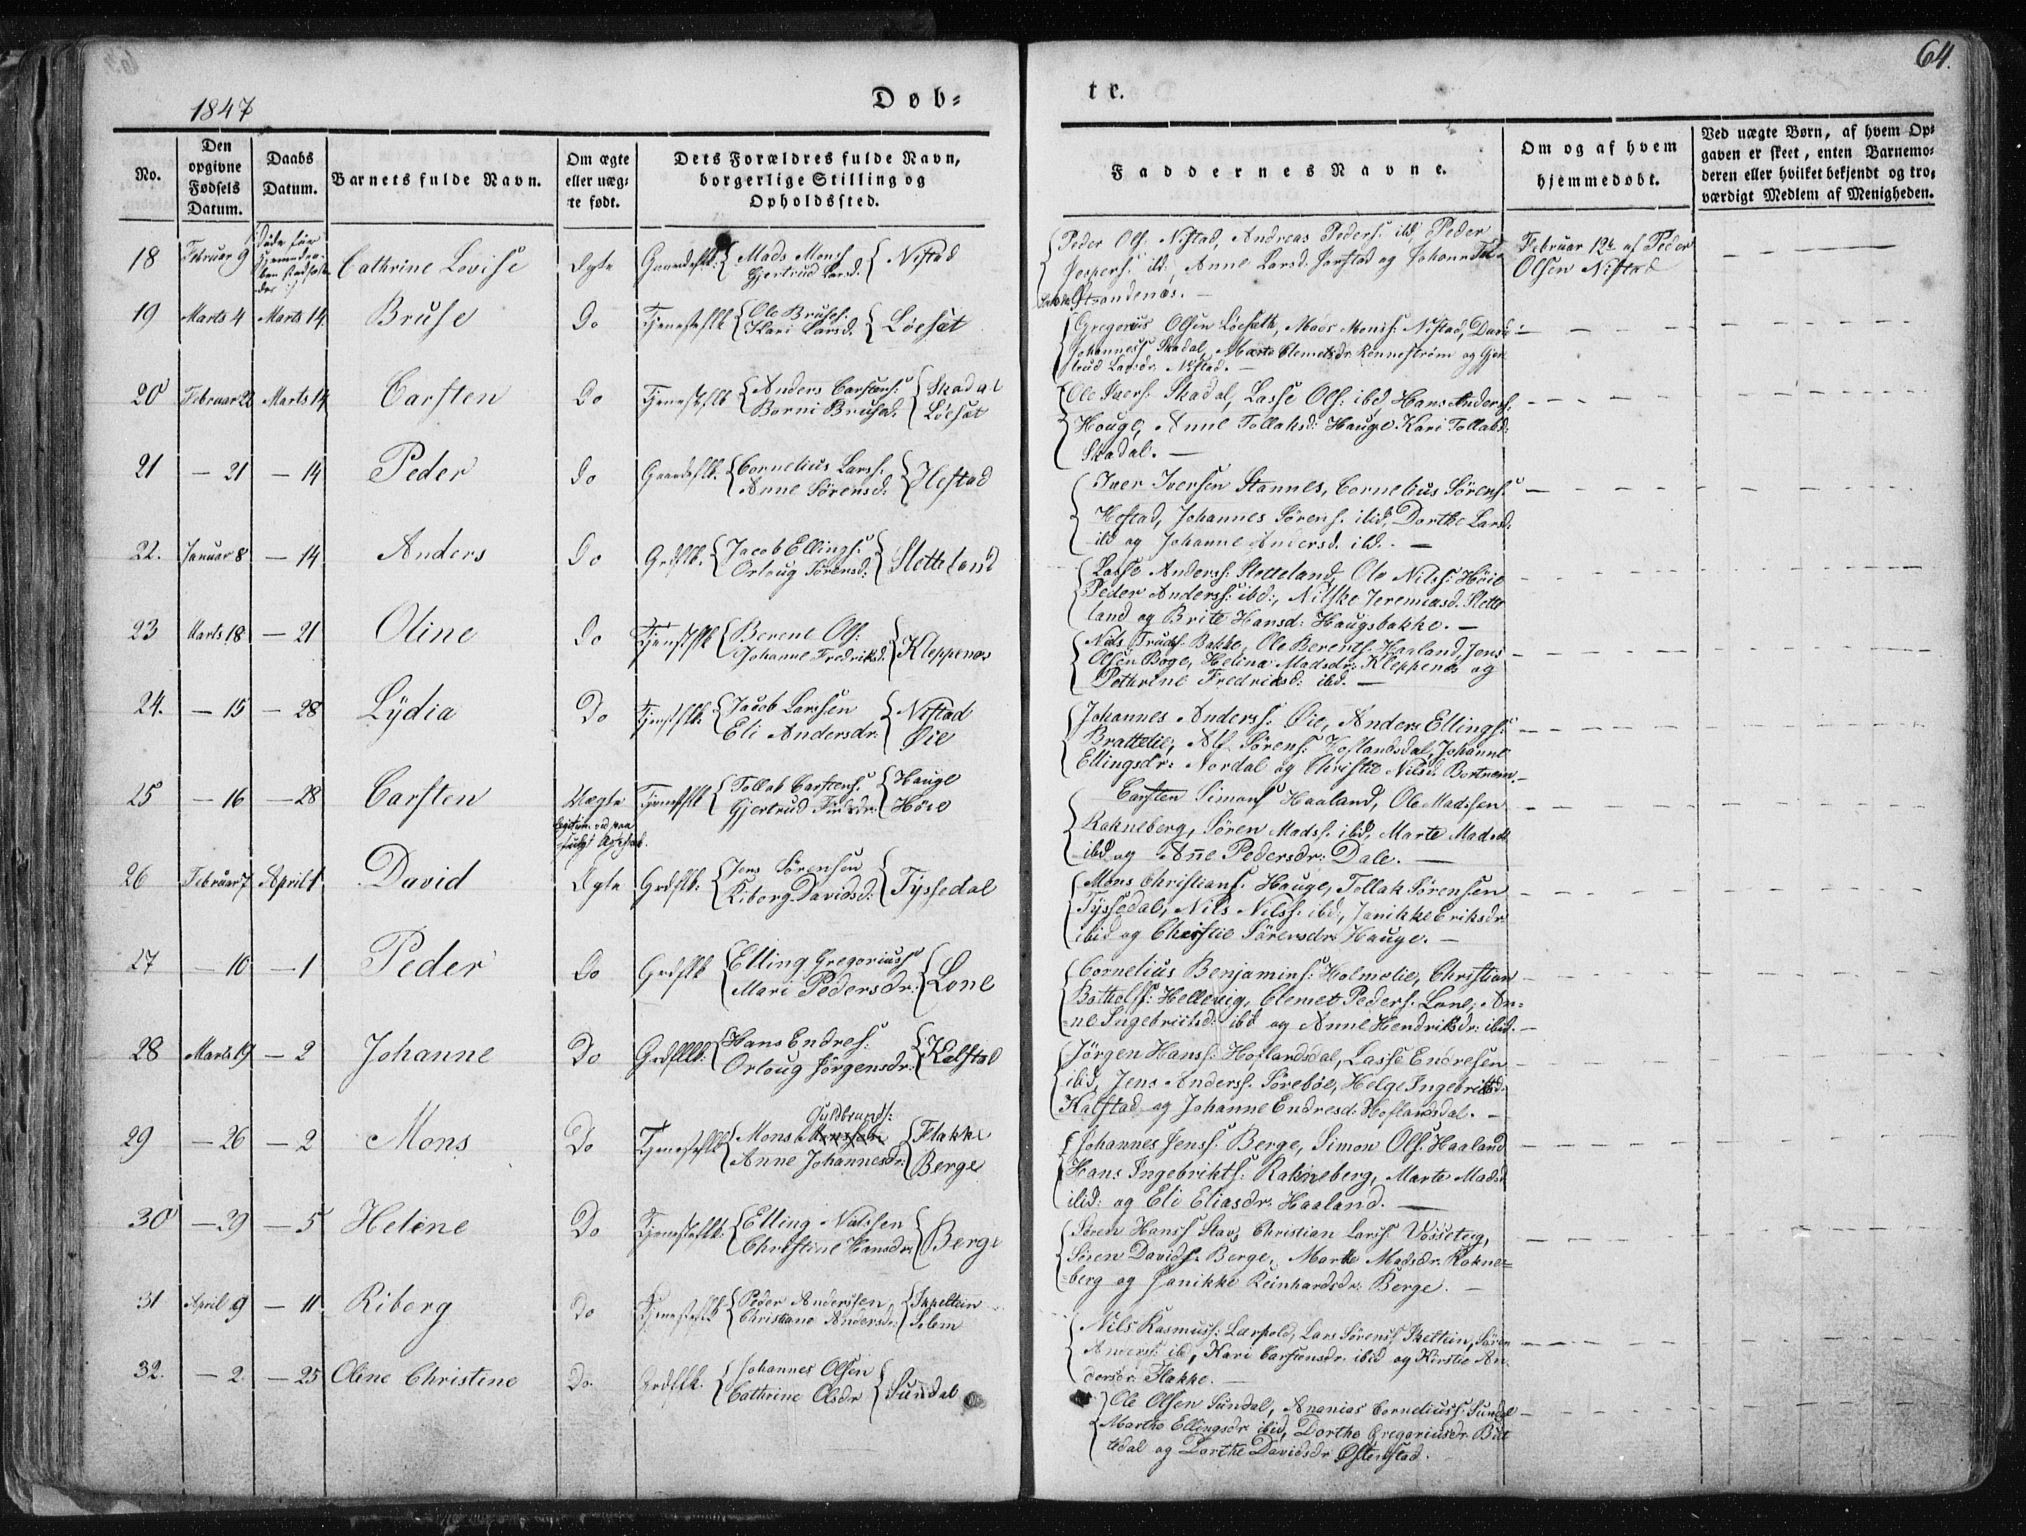 64.
1847
Døb-
te.
No.
Den opgivne Fødsels Datum.
Daabs Datum.
Barnets fulde Navn.
Om ægte eller uæg- te født.
Dets Forældres fulde Navn, borgerlige Stilling og Opholdssted.
Faddernes Navne.
Om og af hvem hjemmedøbt.
Ved uægte Børn, af hvem Op- gaven er skeet, enten Barnemo- deren eller hvilket bekjendt og tro- værdigt Medlem af Menigheden.
18 Februar 9 Døde før Cathrine Lovise Ægte Gaardeflk: Mads Mons: Gjertrud Larsd: Nistad
Peder Ols: Nistad, Andreas Peders: ibd, Peder
Jespers: ibd, Anne Larsd: Jarstad og Johanne
Strandenæs. —
Februar 12te af Peder
Olsen Nistad
19 Marts 4 Marts 14. Bruse Do Tjenesteflk Ole Bruses: Kari Larsd: Løesæt
Gregorius Olsen Løesæth, Mads Mons: Nistad, David
Johanness: Skadal, Marte Clemetsdr. Rennestrøm og Gjer
trud Larsdr. Nistad. —
20 Februar 22 Marts 14 Carsten Do Tjenesteflk Anders Carstens: Borni Brusd: Skadal Løesæt
Ole Ivers: Skadal, Lasse Ols: ibd, Hans Anders:
Houge, Anne Tollaksd: Hauge Kari Tollaksd:
Skadal. —
21 — 21 — 14 Peder Do Gaardeflk. Cornelius Larss: Anne Sørensd. Hestad
Iver Iversen Stannes, Cornelius Sørens:
Hestad, Johannes Sørens: ibid, Dorthe Larsd:
ibd og Johanne Andersd. ibd. —
22. Januar 8 — 14 Anders Do Grdflk. Jacob Ellings: Orloug Sørensd: Sletteland
Lasse Anderss: Sletteland, Ole Nils: Høie
Peder Anderss: ibd:, Nilske Jeremiasd. Slette
land og Brite Hansd: Haugsbakke. —
23 Marts 18 — 21 Oline Do Tjenstflk Berent Ols: Johanne Fredriksd. Kleppenæs
Nils Truls: Bakke, Ole Berents: Haaland, Jens
Olsen Boge, Helina Madsdr: Kleppenæs og
Pethrine Fredriksd: ibd. —
24. — 15 — 28 Lydia Do Tjenstflk. Jacob Larssen Eli Andersdr: Nistad Øie
Johannes Anderss: Øie, Anders Ellings:
Brattelie, Alf Sørens: Hoflandsdal, Johanne
Ellingsdr: Nordal og Christie Nilsd. Bortnem. —
25 — 16 — 28 Carsten Uægte Tjenstflk Tollak Carstens: Gjertrud Findsdr. Hauge Høie
Carsten Simons: Haaland, Ole Madssen
Rakneberg, Søren Mads: ibid, Marte Madsd:
ibd og Anne Pedersdr: Dale. —
26 Februar 7 April 1 David Ægte Grdflk: Jens Sørensen Riborg Davidsd: Tyssedal
Mons Christians: Hauge, Tollak Sørensen
Tyssedal, Nils Nils: ibd, Janikke Eriksdr.
ibid og Christie Sørensdr. Hauge. —
27 — 10 — 1 Peder Do Grdflk Elling Gregoriuss: Mari Pedersdr: Lone
Cornelius Benjamins: Holmelie, Christian
Botholfs: Hellevig, Clemet Peders. Lone, An-
ne Ingebrictsd: ibd og Anne Hendriksdr: ibid. —
28 Marts 19 — 2 Johanne Do Grdflk: Hans Endres: Orloug Jørgensdr: Kalstad
Jørgen Hans: Hoflandsdal, Lasse Endresen
ibd, Jens Anders: Sørebøe, Helge Ingebrictsd.
Kalstad og Johanne Endresd: Hoflandsdal. —
29 — 26 — 2 Mons Do Tjenesteflk Mons Guldbrands: Anne Johannesdr: Flakke Berge
Johannes Jens: Berge, Simon Ols: Haaland
Hans Ingebrikts: Rakneberg, Marte Madsd
ibid: og Eli Eliasdr: Haaland. —
30 — 29 — 5 Helene Do Tjenesteflk. Elling Nilssen Christine Hansdr: Berge
Søren Hans: Stav, Christian Lars: Vosseteig,
Søren Davids: Berge, Marte Madsdr. Rakne-
berg og Janikke Reinhardsdr: Berge. —
31 April 9 — 11 Riborg Do Tjenesteflk Peder Anderssen, Christiane Andersdr: Solem
Nils Rasmuss: Lærpold, Lars Sørens:
Anders: ib, Kari Carstensdr. ibid og Kirstie An
dersdr: Flakke. —
32. — 2. — 25 Oline Christine Do. Grdflk. Johannes Olsen Cathrine Olsdr Sundal
Ole Olsen Sundal, Ananias Corneliuss: Sundal
Marthe Ellingsdr ibid, Dorthe Gregoriusdr.
og Dorthe Davidsdr Østenstad.